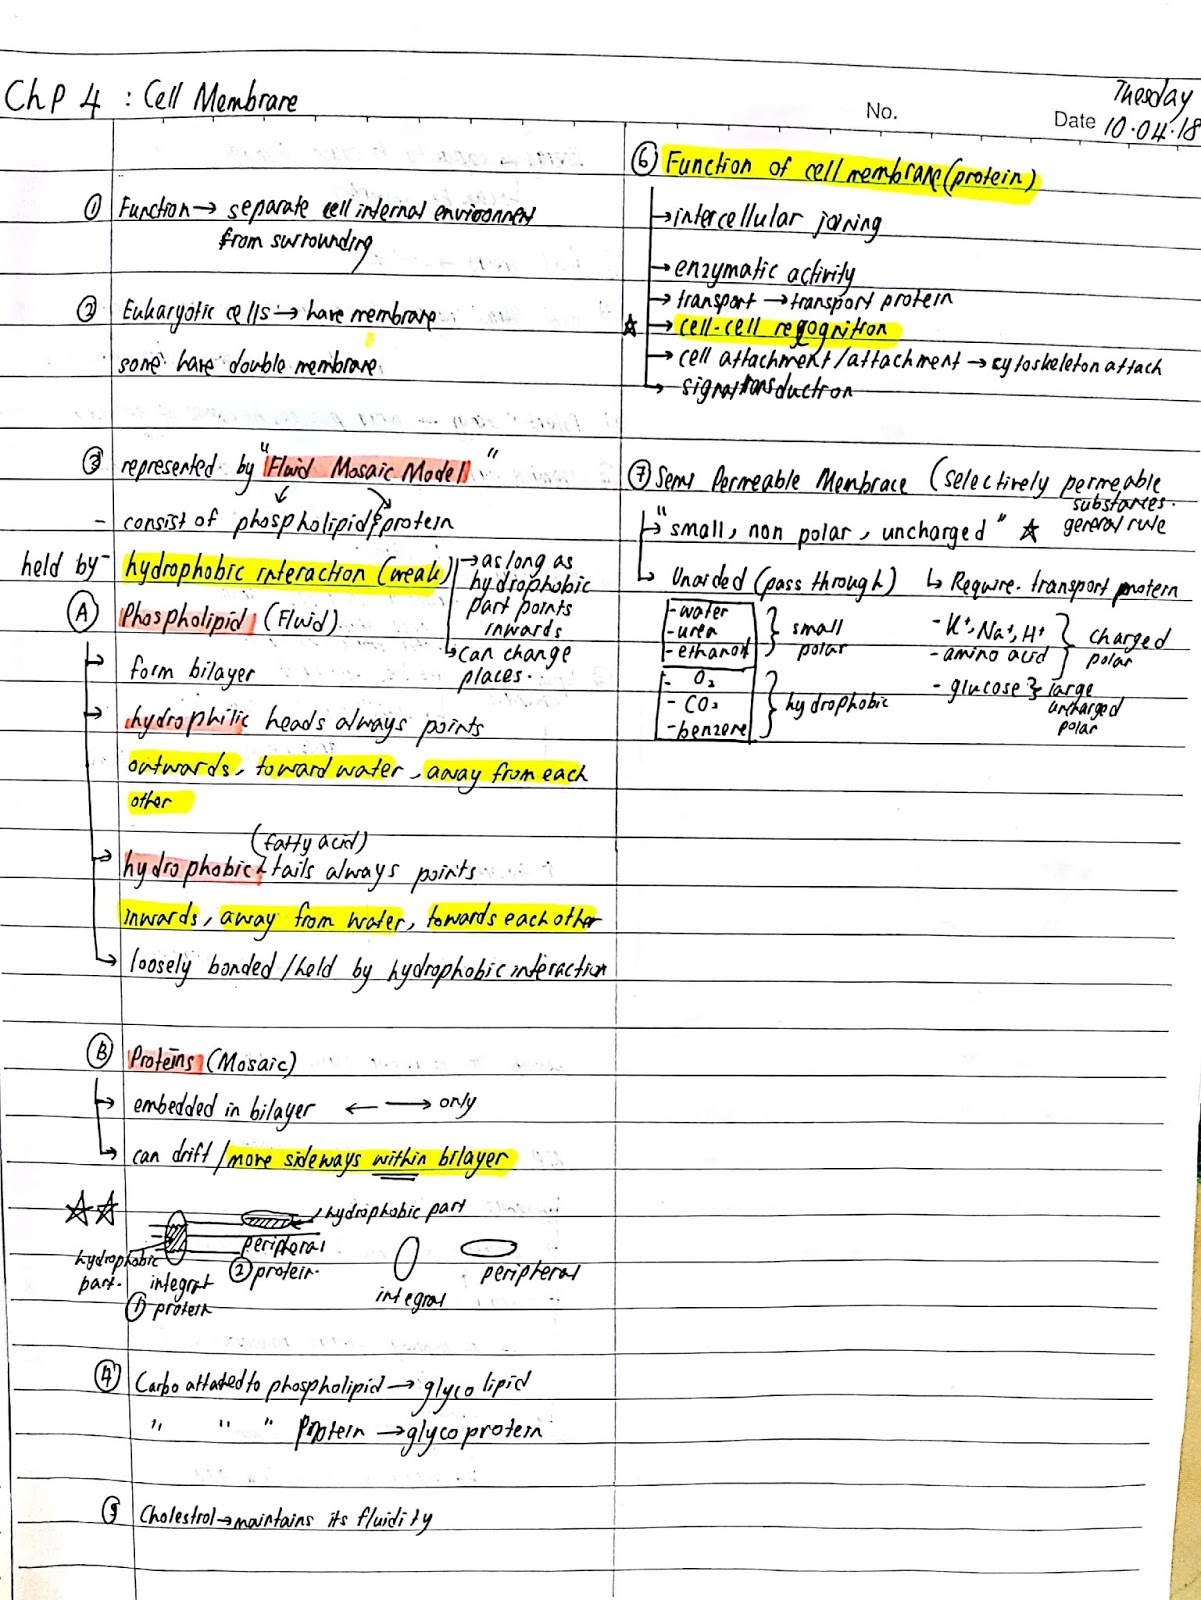 Chp 4 : Cell Membrane
No.
Tuesday
Date 10.04.18
① Function → separate cell internal environment
from surrounding
② Eukaryotic cells → have membrane
some have double membrane
③ represented by "Fluid Mosaic Model"
- consist of phospholipid & protein
held by - hydrophobic interaction (weak)
→ as long as
hydrophobic
part points
inwards
→ can change
places.
Ⓐ Phospholipid (Fluid)
→ form bilayer
→ hydrophilic heads always points
outwards, toward water, away from each
other
(fatty acid)
→ hydrophobic tails always points
inwards, away from water, towards each other
→ loosely bonded/held by hydrophobic interaction
Ⓑ Proteins (Mosaic)
→ embedded in bilayer ← → only
→ can drift/move sideways within bilayer
☆☆
hydrophobic part
hydrophobic
part.
integral
① protein
peripheral
② protein.
integral
peripheral
④ Carbo attated to phospholipid → glyco lipid
" " " Protein → glycoprotein
⑤ Cholestrol → maintains its fluidity
⑥ Function of cell membrane (protein)
→ intercellular joining
→ enzymatic activity
→ transport → transport protein
☆ → cell-cell regognition
→ cell attachment/attachment → cytoskeleton attach
→ signal transduction
⑦ Semi Permeable Membrace (selectively permeable
substances.
→ "small, non polar, uncharged" ☆ general rule
↳ Unaided (pass through)
- water
- urea
- ethanol
} small
polar
- O₂
- CO₂
- benzene
} hydrophobic
↳ Require. transport protein
- K⁺, Na⁺, H⁺
- amino acid
} charged
polar
- glucose } large
uncharged
polar